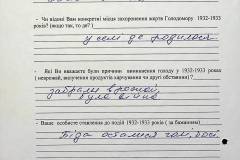 - Чи відомі Вам конкретні місця захоронення жертв Голодомору 1932-1933 років? (якщо так, то де?)
у селі де
- Які Ви вважаєте були причини виникнення голоду у 1932-1933 роках ( неврожай, вилучення продуктів харчування чи другі обставини)?
забрали врожай,
була війна
- Ваше особисте ставлення до подій 1932-1933 років ( за бажанням)
Біда остались голі, босі.